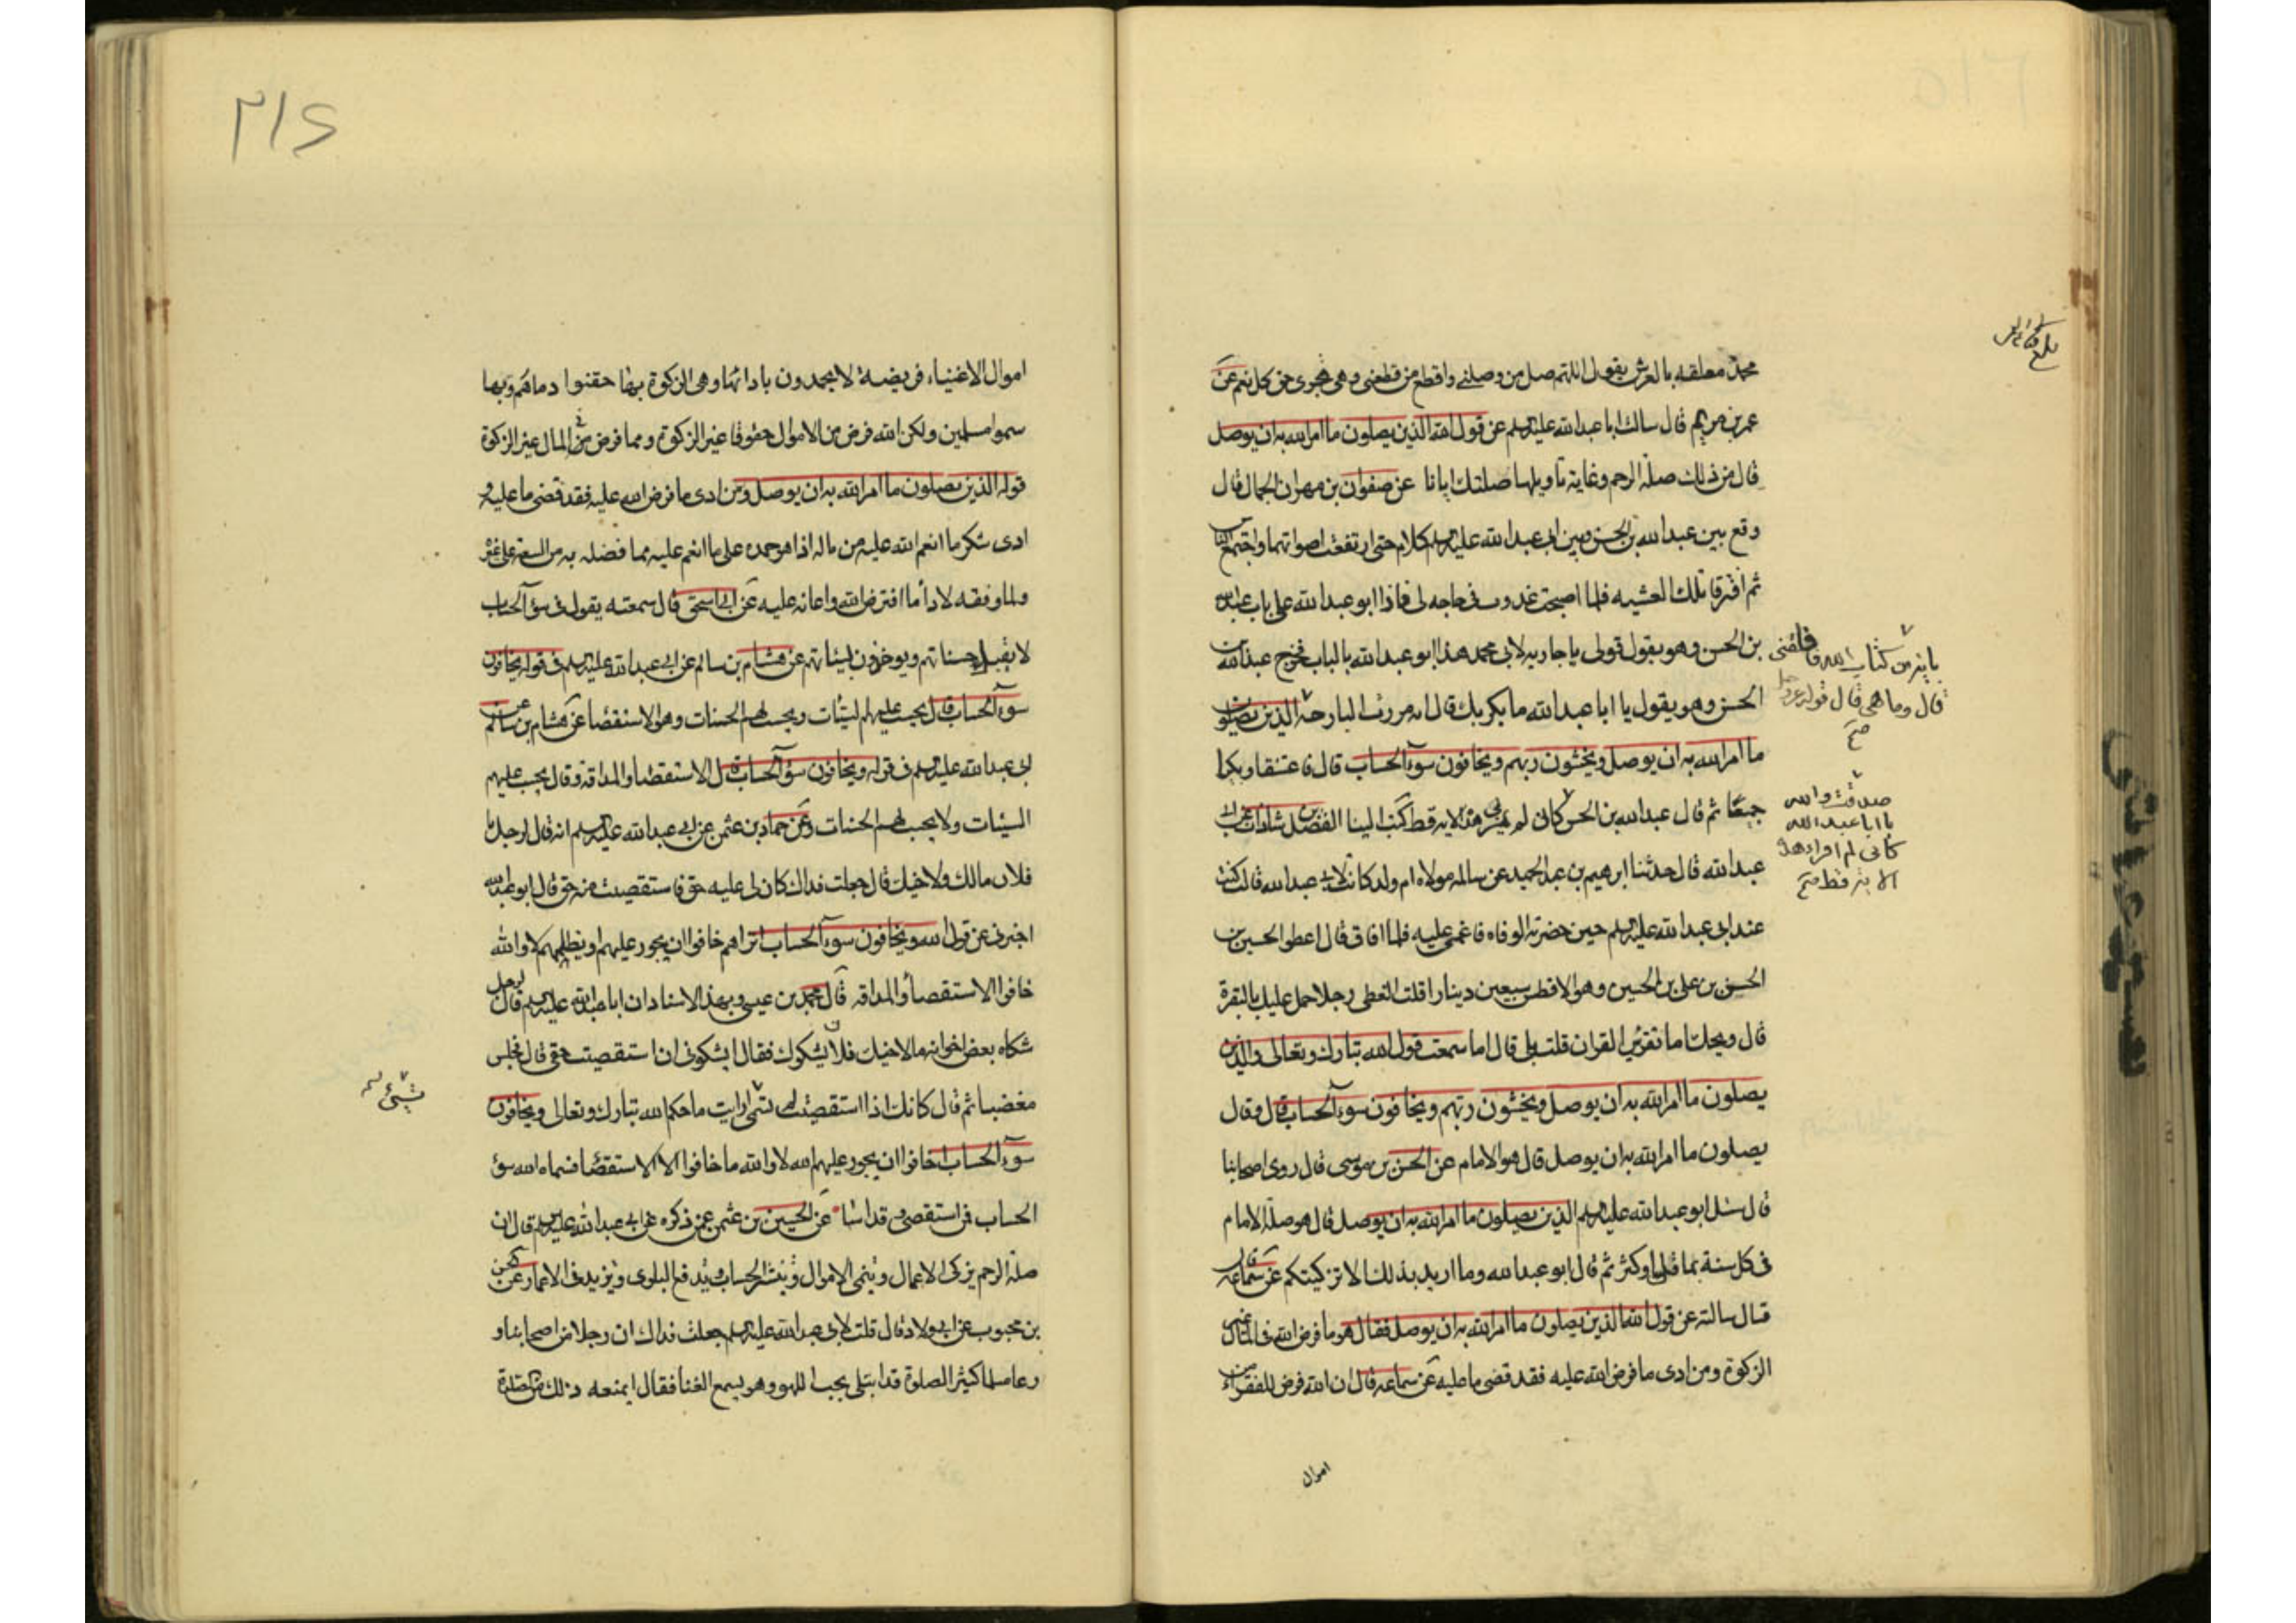 محمد معلقه بالعرش يقول اللهم صل من وصلني واقطع من قطعني وهي تجري في كل رحم عن
عمر بن مريم قال سالت ابا عبد الله عليه السلم عن قول الله الذين يصلون ما امر الله به ان يوصل
قال من ذلك صلة الرحم وغاية تاويلها صلتك ايانا عن صفوان بن مهران الجمال قال
وقع بين عبد الله بن الحسن وبين ابي عبد الله عليه السلم كلام حتى ارتفعت اصواتهما واجتمع الناس
ثم افترقا تلك العشيه فلما اصبحت غدوت في حاجه لي فاذا ابو عبد الله على باب عبد الله
بن الحسن وهو يقول قولي يا جاريه لابي محمد هذا ابو عبد الله بالباب فخرج عبد الله بن
الحسن وهو يقول يا ابا عبد الله ما بكر بك قال انه مررت البارحة الذين يصلون
ما امر الله به ان يوصل ويخشون ربهم ويخافون سوء الحساب قال فاعتنقا وبكيا
جميعا ثم قال عبد الله بن الحسن كان لم يمر بي هذه الاية قط كتب الينا الفضل بن شاذان عن ابي
عبد الله قال حدثنا ابرهيم بن عبد الحميد عن سالمه مولاه ام ولد كانت لابي عبد الله قالت كنت
عند ابي عبد الله عليه السلم حين حضرته الوفاه فاغمى عليه فلما افاق قال اعطوا الحسين بن
الحسين بن على بن الحسين وهو الافطس سبعين دينارا قلت اتعطى رجلا حمل عليك بالشفرة
قال ويحك اما تقرئين القران قلت بلى قال اما سمعت قول الله تبارك وتعالى والذين
يصلون ما امر الله به ان يوصل ويخشون ربهم ويخافون سوء الحساب قال وقال
يصلون ما امر الله به ان يوصل قال هو الامام عن الحسن بن موسى قال روى اصحابنا
قال سئل ابو عبد الله عليه السلم الذين يصلون ما امر الله به ان يوصل قال هو صلة الامام
فى كل سنة بما قل او كثر ثم قال ابو عبد الله وما اريد بذلك الا تزكيتكم عن سماعه قال
قال سالته عن قول الله الذين يصلون ما امر الله به ان يوصل فقال هو ما فرض الله فى المال غير
الزكوة ومن ادى ما فرض الله عليه فقد قضى ما عليه عن سماعه قال ان الله فرض للفقراء من
اموال
باية من كتاب الله فاقلقتني
قال وما هي قال قوله عز وجل
صح
صدقت والله
يا ابا عبد الله
كاني لم اقرا هذه
الاية قط صح
٢١٤
اموال الاغنياء فريضة لا يحمدون بادائها وهى الزكوة بها حقنوا دماءهم وبها
سموا مسلمين ولكن الله فرض من الاموال حقوقا غير الزكوة ومما فرض فى المال غير الزكوة
قوله الذين يصلون ما امر الله به ان يوصل ومن ادى ما فرض الله عليه فقد قضى ما عليه و
ادى شكر ما انعم الله عليه من ماله اذا هو حمده على ما انعم عليه مما فضله به من السعة على غيره
ولما وفقه لاداء ما افترض الله واعانه عليه عن ابي اسحق قال سمعته يقول في سوء الحساب
لا يقبل حسناتهم ويوخذون بسيئاتهم عن هشام بن سالم عن ابي عبد الله عليه السلم في قوله يخافون
سوء الحساب قال يحسب عليهم السيئات ويحسب لهم الحسنات وهو الاستقصا عن هشام بن سالم عن
ابي عبد الله عليه السلم في قوله ويخافون سوء الحساب قال الاستقصا والمداقه وقال يحسب عليهم
السيئات ولا يحسب لهم الحسنات وعن حماد بن عثمن عن ابي عبد الله عليه السلم انه قال لرجل يا
فلان مالك ولاخيك قال جعلت فداك كان لى عليه حق فاستقصيت منه حقى قال ابو عبد الله
اخبرنى عن قول الله ويخافون سوء الحساب اتراهم خافوا ان يجور عليهم او يظلمهم لا والله
خافوا الاستقصاء والمداقه قال محمد بن عيسى وبهذا الاسناد ان ابا عبد الله عليه السلم قال لرجل
شكاه بعض اخوانه ما لاخيك فلان يشكوك فقال ايشكونى ان استقصيت حقى قال فجلس
مغضبا ثم قال كانك اذا استقصيت لم تسئ ارايت ما حكى الله تبارك وتعالى ويخافون
سوء الحساب اخافوا ان يجور عليهم الله لا والله ما خافوا الا الاستقصا فسماه الله سوء
الحساب فمن استقصى فقد اسا عن الحسين بن عثمن عمن ذكره عن ابي عبد الله عليه السلم قال ان
صلة الرحم يزكى الاعمال وينمى الاموال وييسر الحساب ويدفع البلوى ويزيد فى الاعمار عن الحسن
بن محبوب عن ابي ولاد قال قلت لابي عبد الله عليه السلم جعلت فداك ان رجلا من اصحابنا و
رعا مسلما كثير الصلوة قد ابتلى بحب اللهو وهو يسمع الغنا فقال ايمنعه ذلك من الصلوة